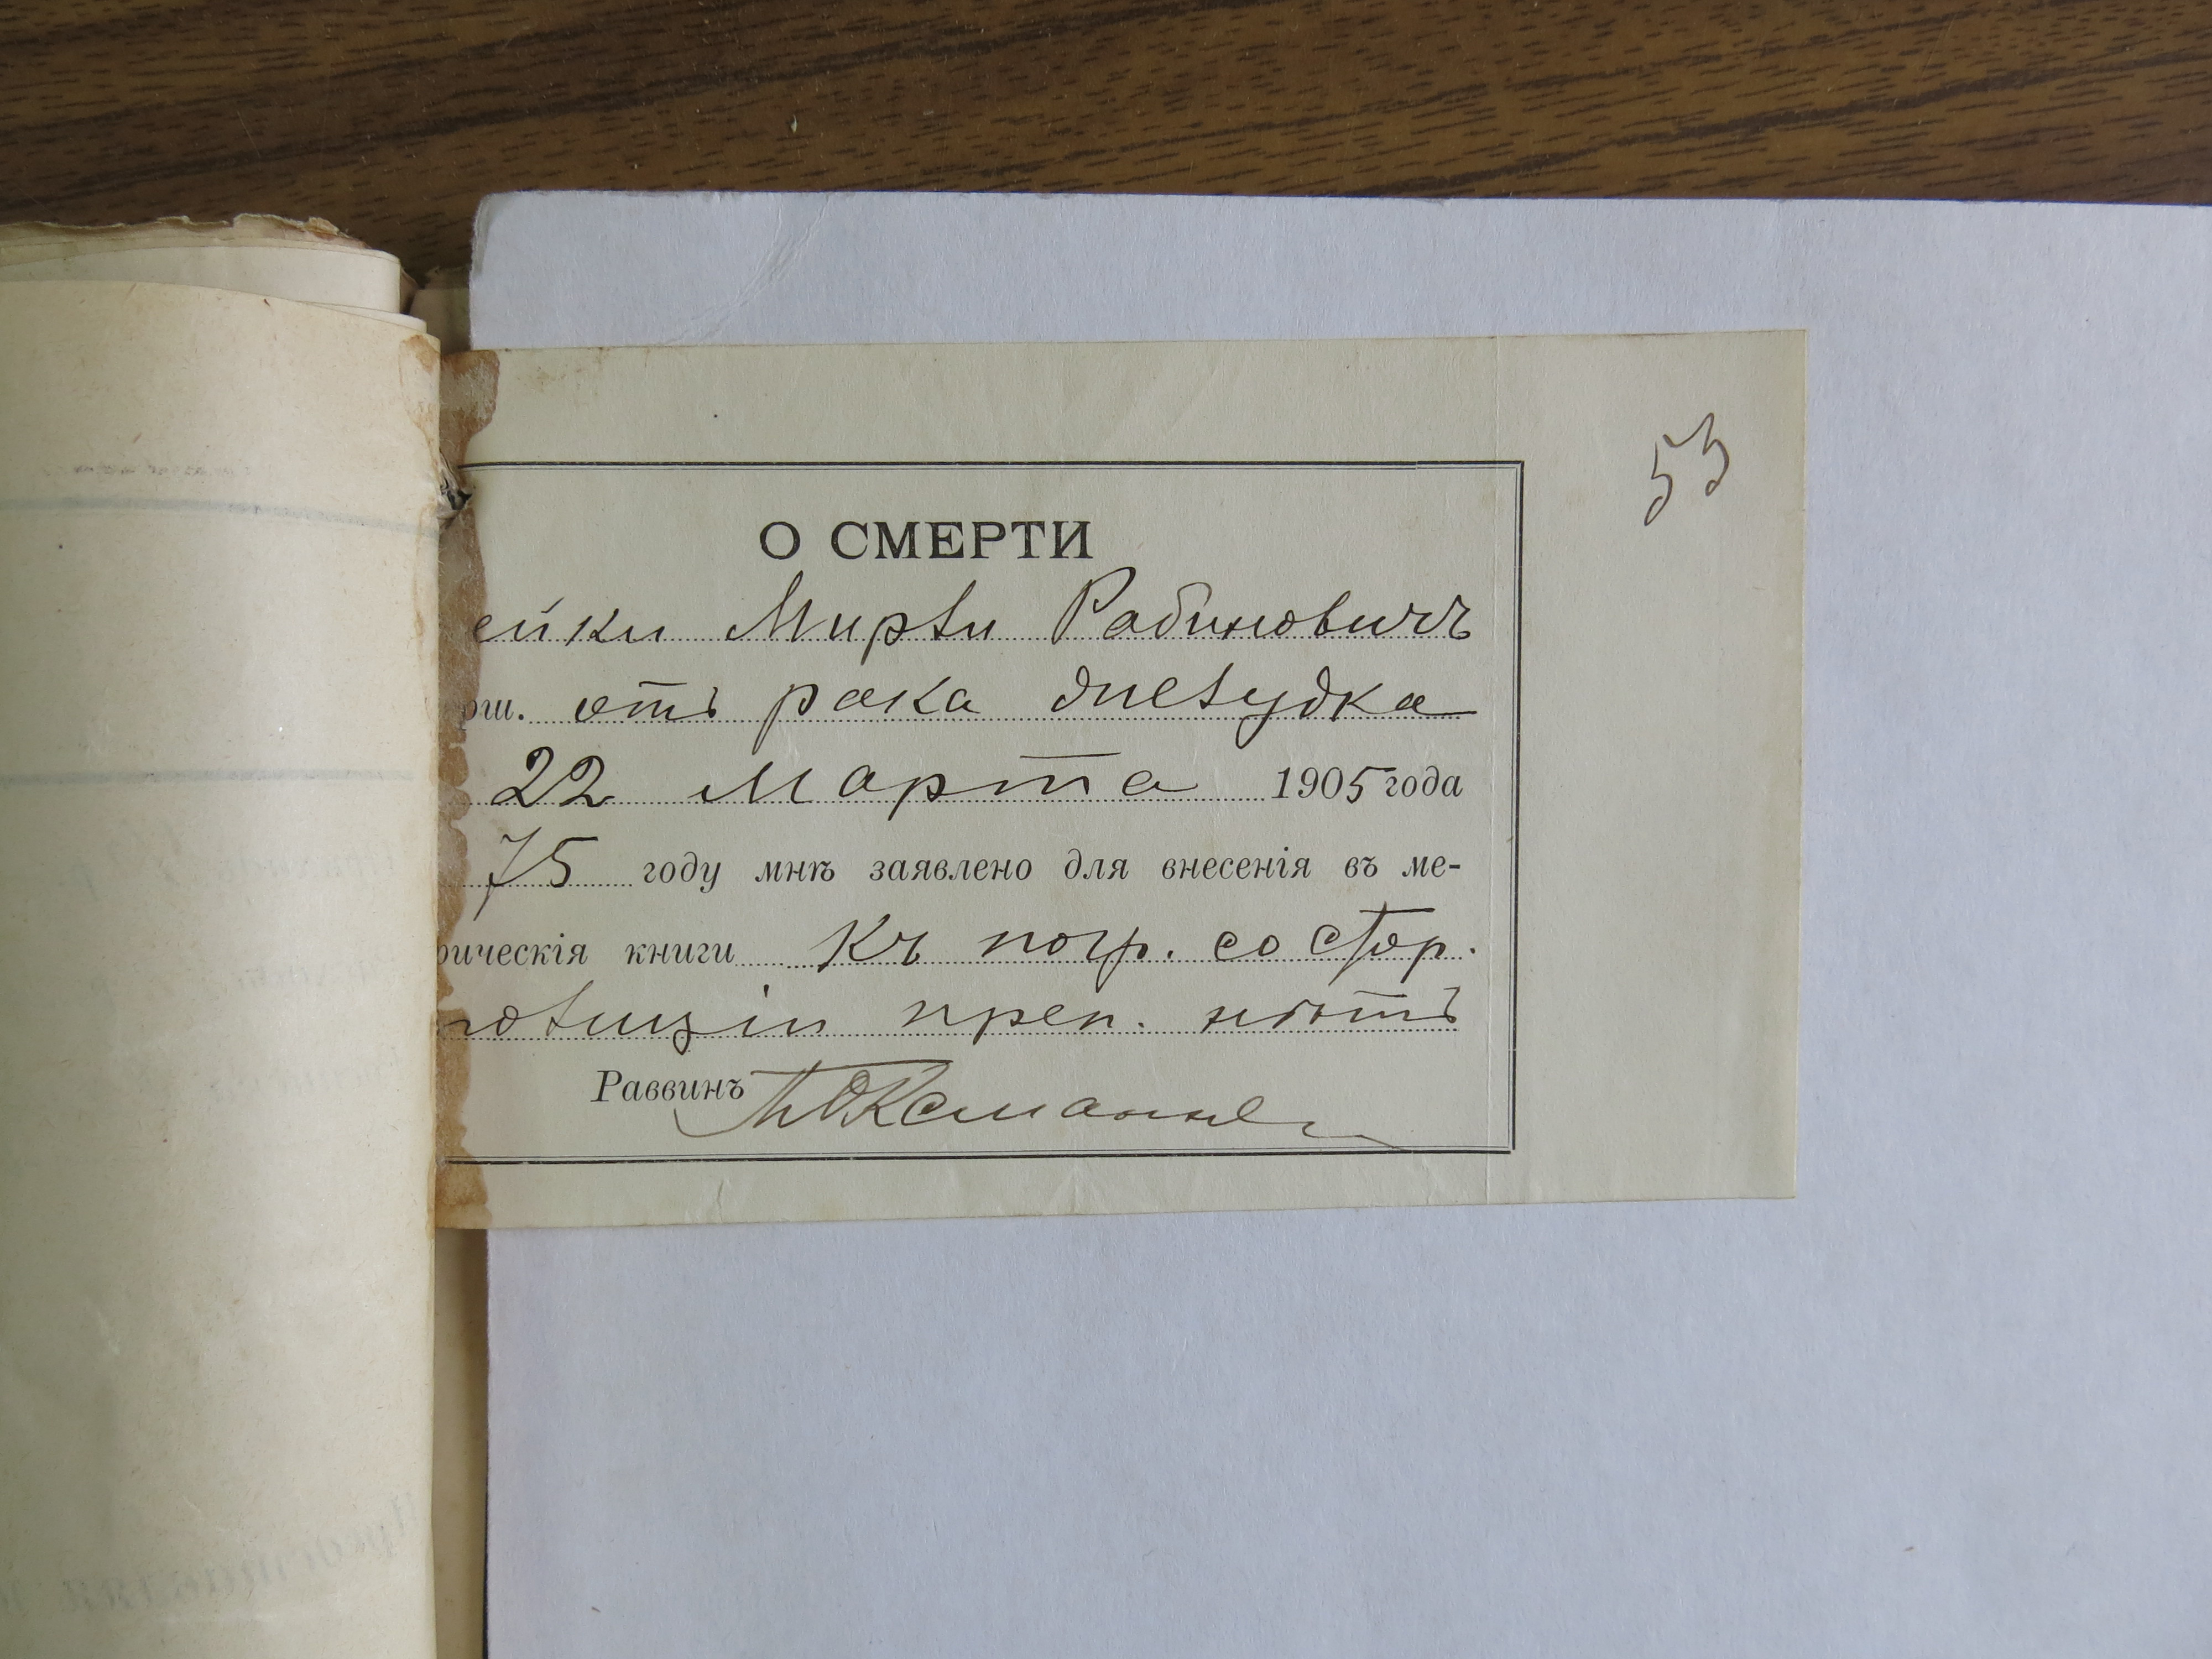 53
О СМЕРТИ
ейки Мирли Рабиновичъ
рш. отъ рака желудка
22 Марта 1905 года
75 году мнѣ заявлено для внесенія въ ме-
рическія книги Къ погр. со стор.
полиціи преп. нѣтъ
Раввинъ